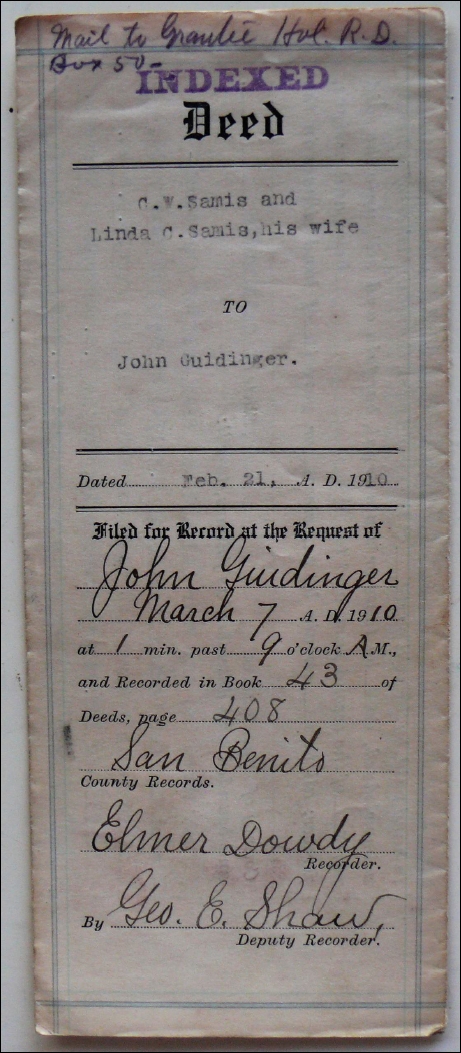 Mail to Grantee Hol. R.D.
Box 50-
INDEXED
Deed
C.W.Samis and
Linda C.Samis,his wife
TO
John Guidinger.
Dated Feb. 21, A. D. 1910
Filed for Record at the Request of
John Guidinger
March 7 A. D. 1910
at 1 min. past 9 o'clock A M.,
and Recorded in Book 43 of
Deeds, page 408
San Benito
County Records.
Elmer Dowdy
Recorder.
By Geo. E. Shaw,
Deputy Recorder.